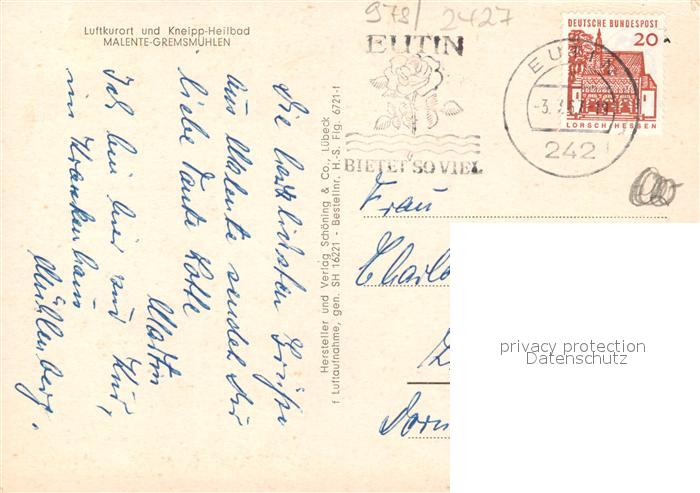 Luftkurort und Kneipp-Heilbad
MALENTE-GREMSMÜHLEN
978/2427
EUTIN
BIETET SO VIEL
EUTIN
-3.
242
DEUTSCHE BUNDESPOST
20
LORSCH/HESSEN
Die herzlichsten Grüße
aus Malente sendet Dir
liebe Tante Lotte
Martin
Ich bin hier zur Kur,
im Krankenhaus
Mühlenberg.
Hersteller und Verlag Schöning & Co., Lübeck
f Luftaufnahme, gen. SH 16221 - Bestellnr. H.-S. Flg. 6721-f
Frau
privacy protection
Datenschutz